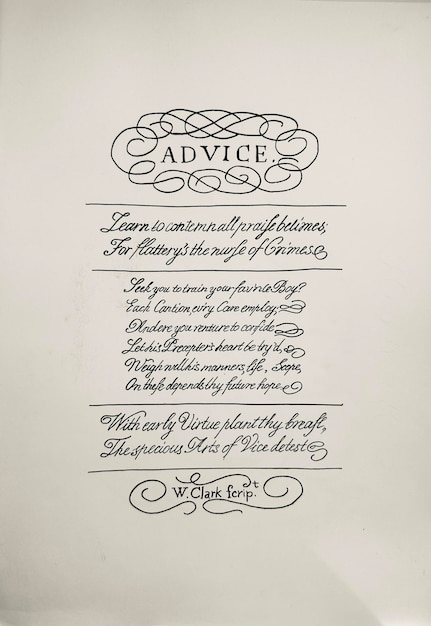 ADVICE.
Learn to contemn all praiſe betimes;
For flattery's the nurſe of Crimes.
Seek you to train your fav'rite Boy?
Each Caution, ev'ry Care employ;
And ere you venture to confide
Let his Preceptor's heart be try'd,
Weigh well his manners, life, Scope,
On theſe depends thy future hope.
With early Virtue plant thy breaſt,
The specious Arts of Vice detest
W. Clark ſcript.